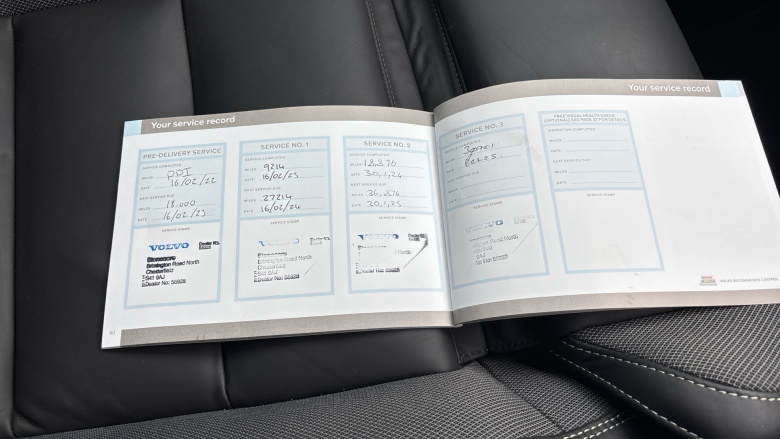 Your service record
PRE-DELIVERY SERVICE
SERVICE COMPLETED
MILES PDI
DATE 16/02/22
NEXT SERVICE DUE
MILES 18.000
DATE 16/02/23
SERVICE STAMP
VOLVO
Stoneacre
Brimington Road North
Chesterfield
S41 9AJ
Dealer No:
SERVICE NO. 1
SERVICE COMPLETED
MILES 9214
DATE 16/02/23
NEXT SERVICE DUE
MILES 27214
DATE 16/02/24
SERVICE STAMP
VOLVO
Dealer No.
Brimington Road North
Chesterfield
S41 9AJ
Dealer No:
SERVICE NO. 2
SERVICE COMPLETED
MILES 18,876
DATE 30,1,24
NEXT SERVICE DUE
MILES 36,876
DATE 30,1,25
SERVICE STAMP
VOLVO
Dealer No:
Your service record
SERVICE NO. 3
SERVICE COMPLETED
MILES
DATE
NEXT SERVICE DUE
MILES
DATE
SERVICE STAMP
VOLVO
FREE VISUAL HEALTH CHECK
(OPTIONAL) SEE PAGE 37 FOR DETAILS
INSPECTION COMPLETED
MILES
DATE
NEXT SERVICE DUE
MILES
DATE
SERVICE STAMP
VOLVO RECOMMENDS CASTROL